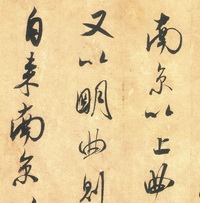 南京以上曲
又以明曲則
自来南京